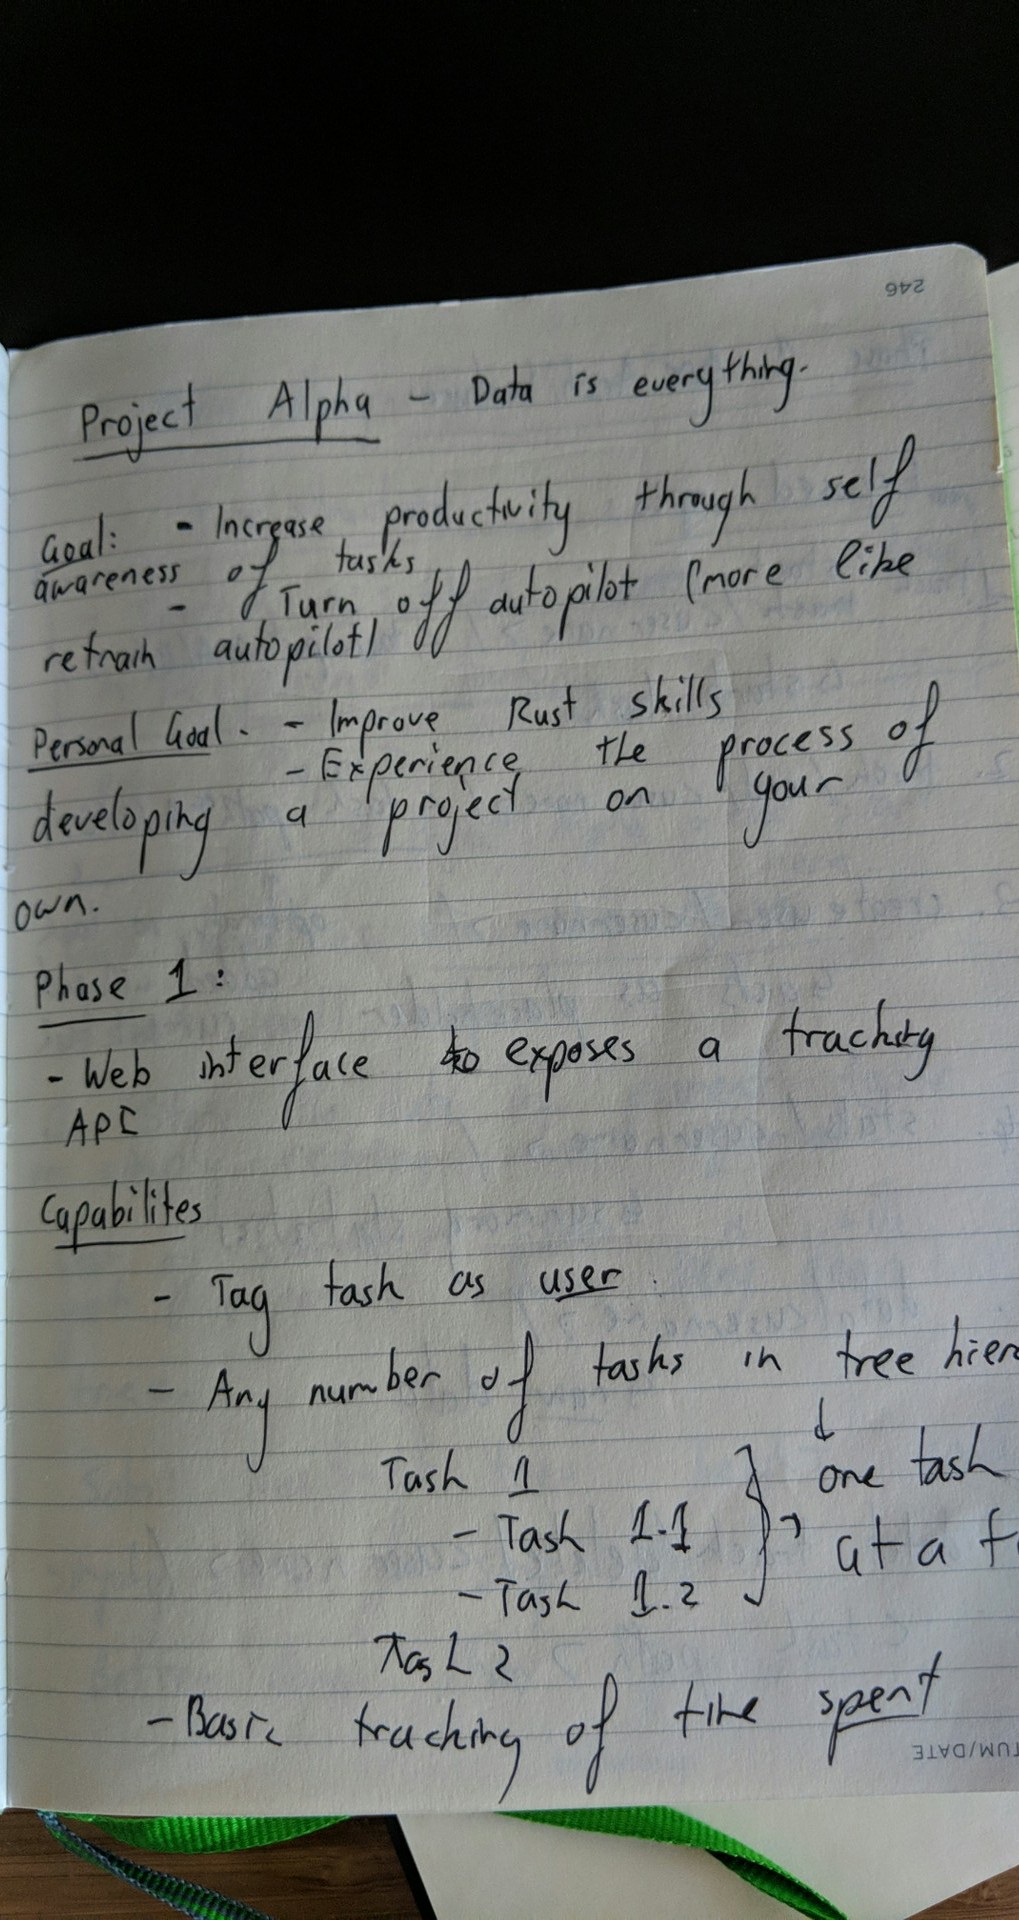 246
Project Alpha - Data is everything.
Goal: - Increase productivity through self
awareness of tasks
- Turn off autopilot (more like
retrain autopilot)
Personal Goal. - Improve Rust skills
- Experience the process of
developing a project on your
own.
Phase 1:
- Web interface to exposes a tracking
API
Capabilites
- Tag task as user
- Any number of tasks in tree hier
Task 1
one task
- Task 1.1
at a
- Task 1.2
Task 2
- Basic tracking of time spent
TUM/DATE